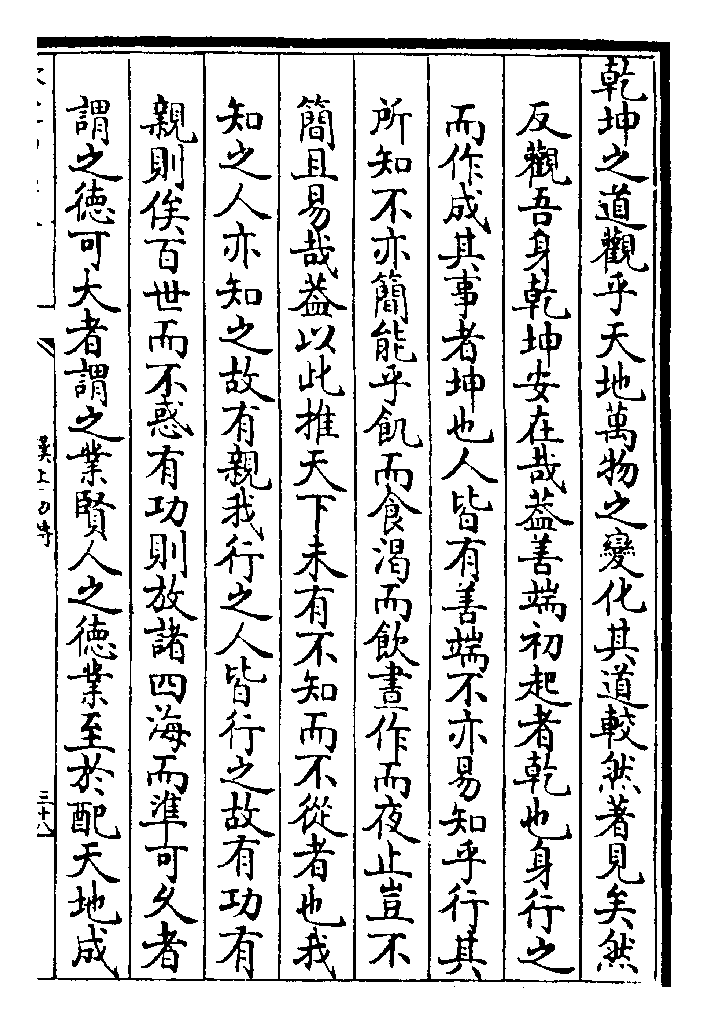 乾坤之道觀乎天地萬物之變化其道較然著見矣然
反觀吾身乾坤安在哉葢善端初起者乾也身行之
而作成其事者坤也人皆有善端不亦易知乎行其
所知不亦簡能乎飢而食渴而飲晝作而夜止豈不
簡且易哉葢以此推天下未有不知而不從者也我
知之人亦知之故有親我行之人皆行之故有功有
親則俟百世而不惑有功則放諸四海而準可久者
謂之徳可大者謂之業賢人之徳業至於配天地成
三十八